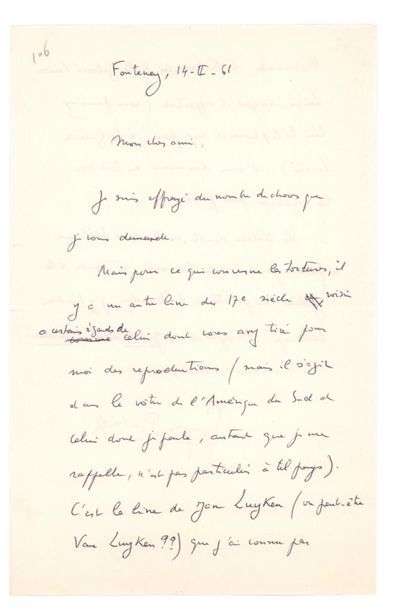 106
Fontenay, 14-II-61
Mon cher ami,
Je suis effrayé du nombre de choses que
je vous demande.
Mais pour ce qui concerne les tortures, il
y a un autre livre du 17e siècle voisin
à certains égards de celui dont vous avez tiré pour
moi des reproductions (mais il s'agit
dans le vôtre de l'Amérique du Sud et
celui dont je parle, autant que je me
rappelle, n'est pas particulier à tel pays).
C'est le livre de Jan Luyken (ou peut-être
Van Luyken ??) que j'ai connu par